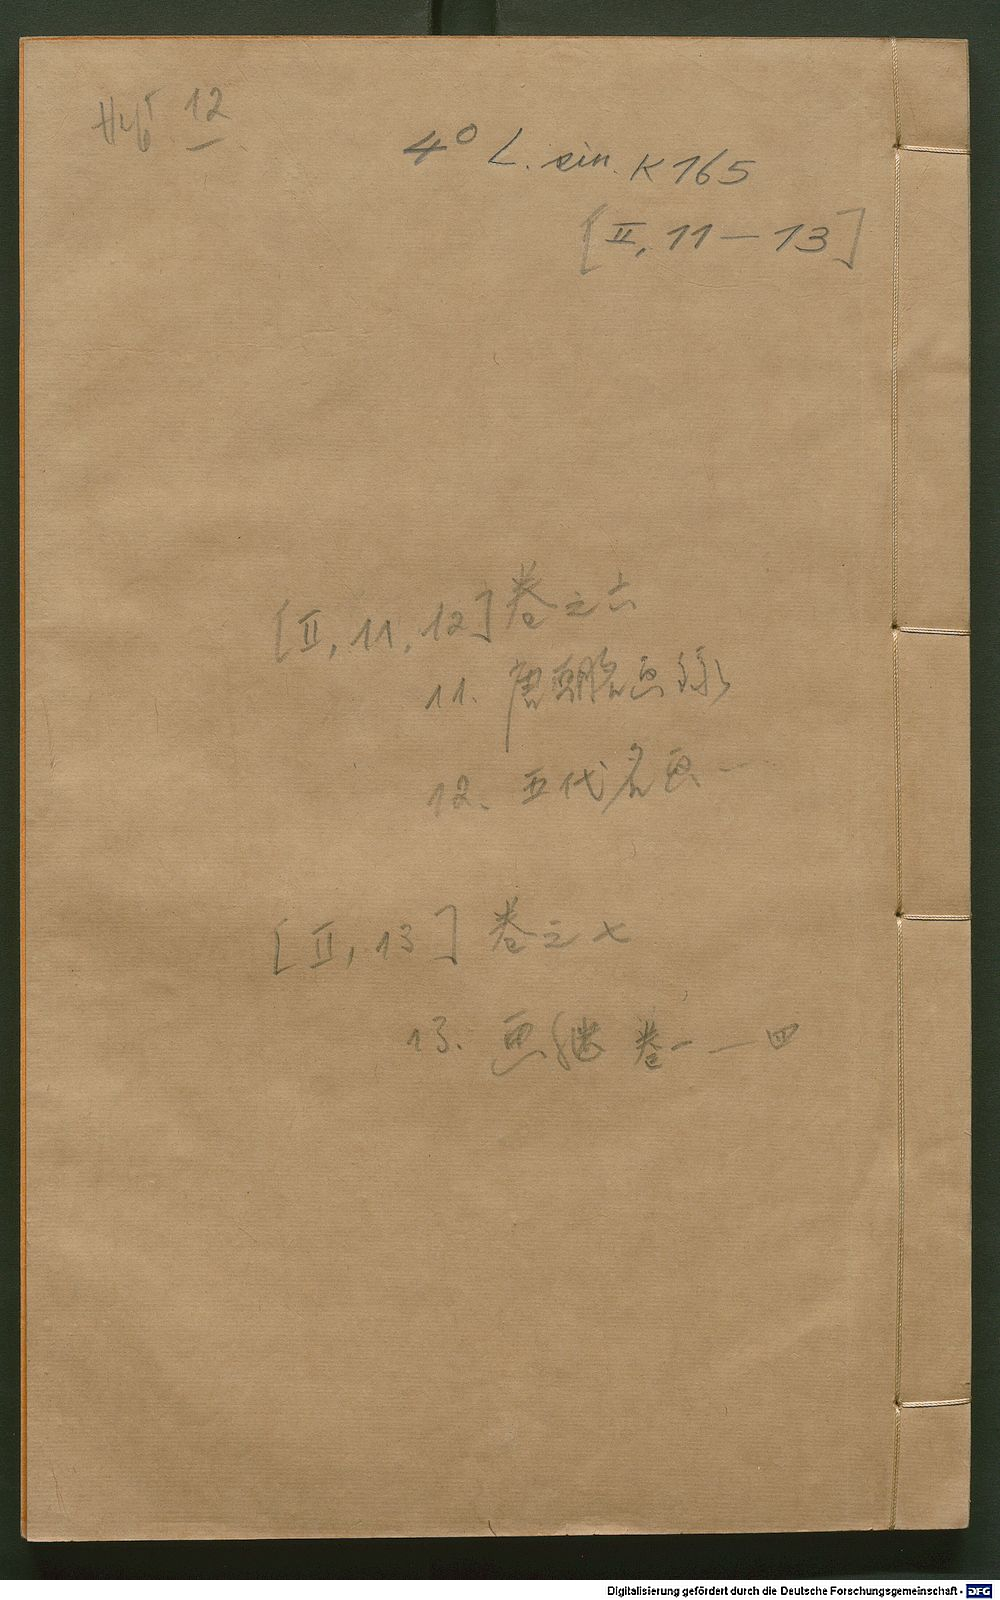 Heft 12
4° L. sin. K 165
[II, 11 — 13]
[II, 11, 12] 卷之六
11. 唐朝名画录
12. 五代名画—
[II, 13] 卷之七
13. 画继 卷一 — 四
Digitalisierung gefördert durch die Deutsche Forschungsgemeinschaft - DFG